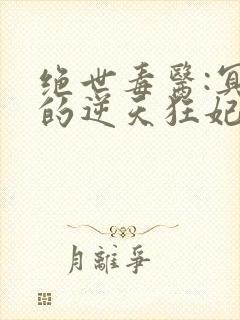 绝世毒醫:冥
的逆天狂妃
月離爭